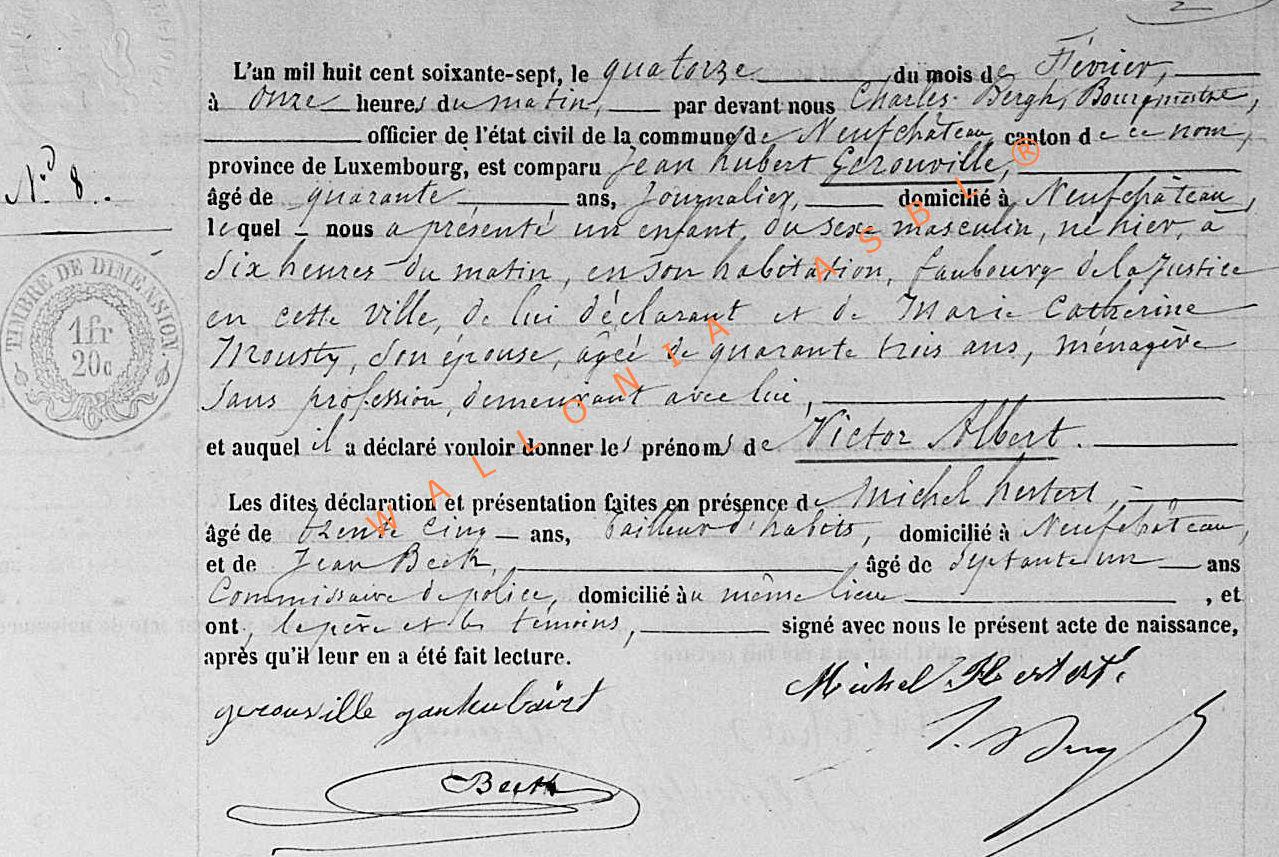 2
L'an mil huit cent soixante-sept, le quatorze du mois de Février,
à onze heures du matin, par devant nous Charles Bergh, Bourgmestre,
officier de l'état civil de la commune de Neufchâteau, canton de ce nom,
province de Luxembourg, est comparu Jean hubert Gérouville,
N.° 8.
âgé de quarante ans, Journalier, domicilié à Neufchâteau,
lequel nous a présenté un enfant du sexe masculin, né hier, à
dix heures du matin, en son habitation, faubourg de la Justice
en cette ville, de lui déclarant et de Marie Catherine
Mousty, son épouse, âgée de quarante trois ans, ménagère
sans profession, demeurant avec lui,
TIMBRE DE DIMENSION.
1fr
20c
et auquel il a déclaré vouloir donner les prénoms de Victor Albert.
Les dites déclaration et présentation faites en présence de Michel herbert,
âgé de trente cinq ans, tailleur d'habits, domicilié à Neufchâteau,
et de Jean Beck, âgé de septante un ans
Commissaire de police, domicilié au même lieu, et
ont, le père et les témoins, signé avec nous le présent acte de naissance,
après qu'il leur en a été fait lecture.
gerouville
Michel
Beck
WALLONIA ASBL ®